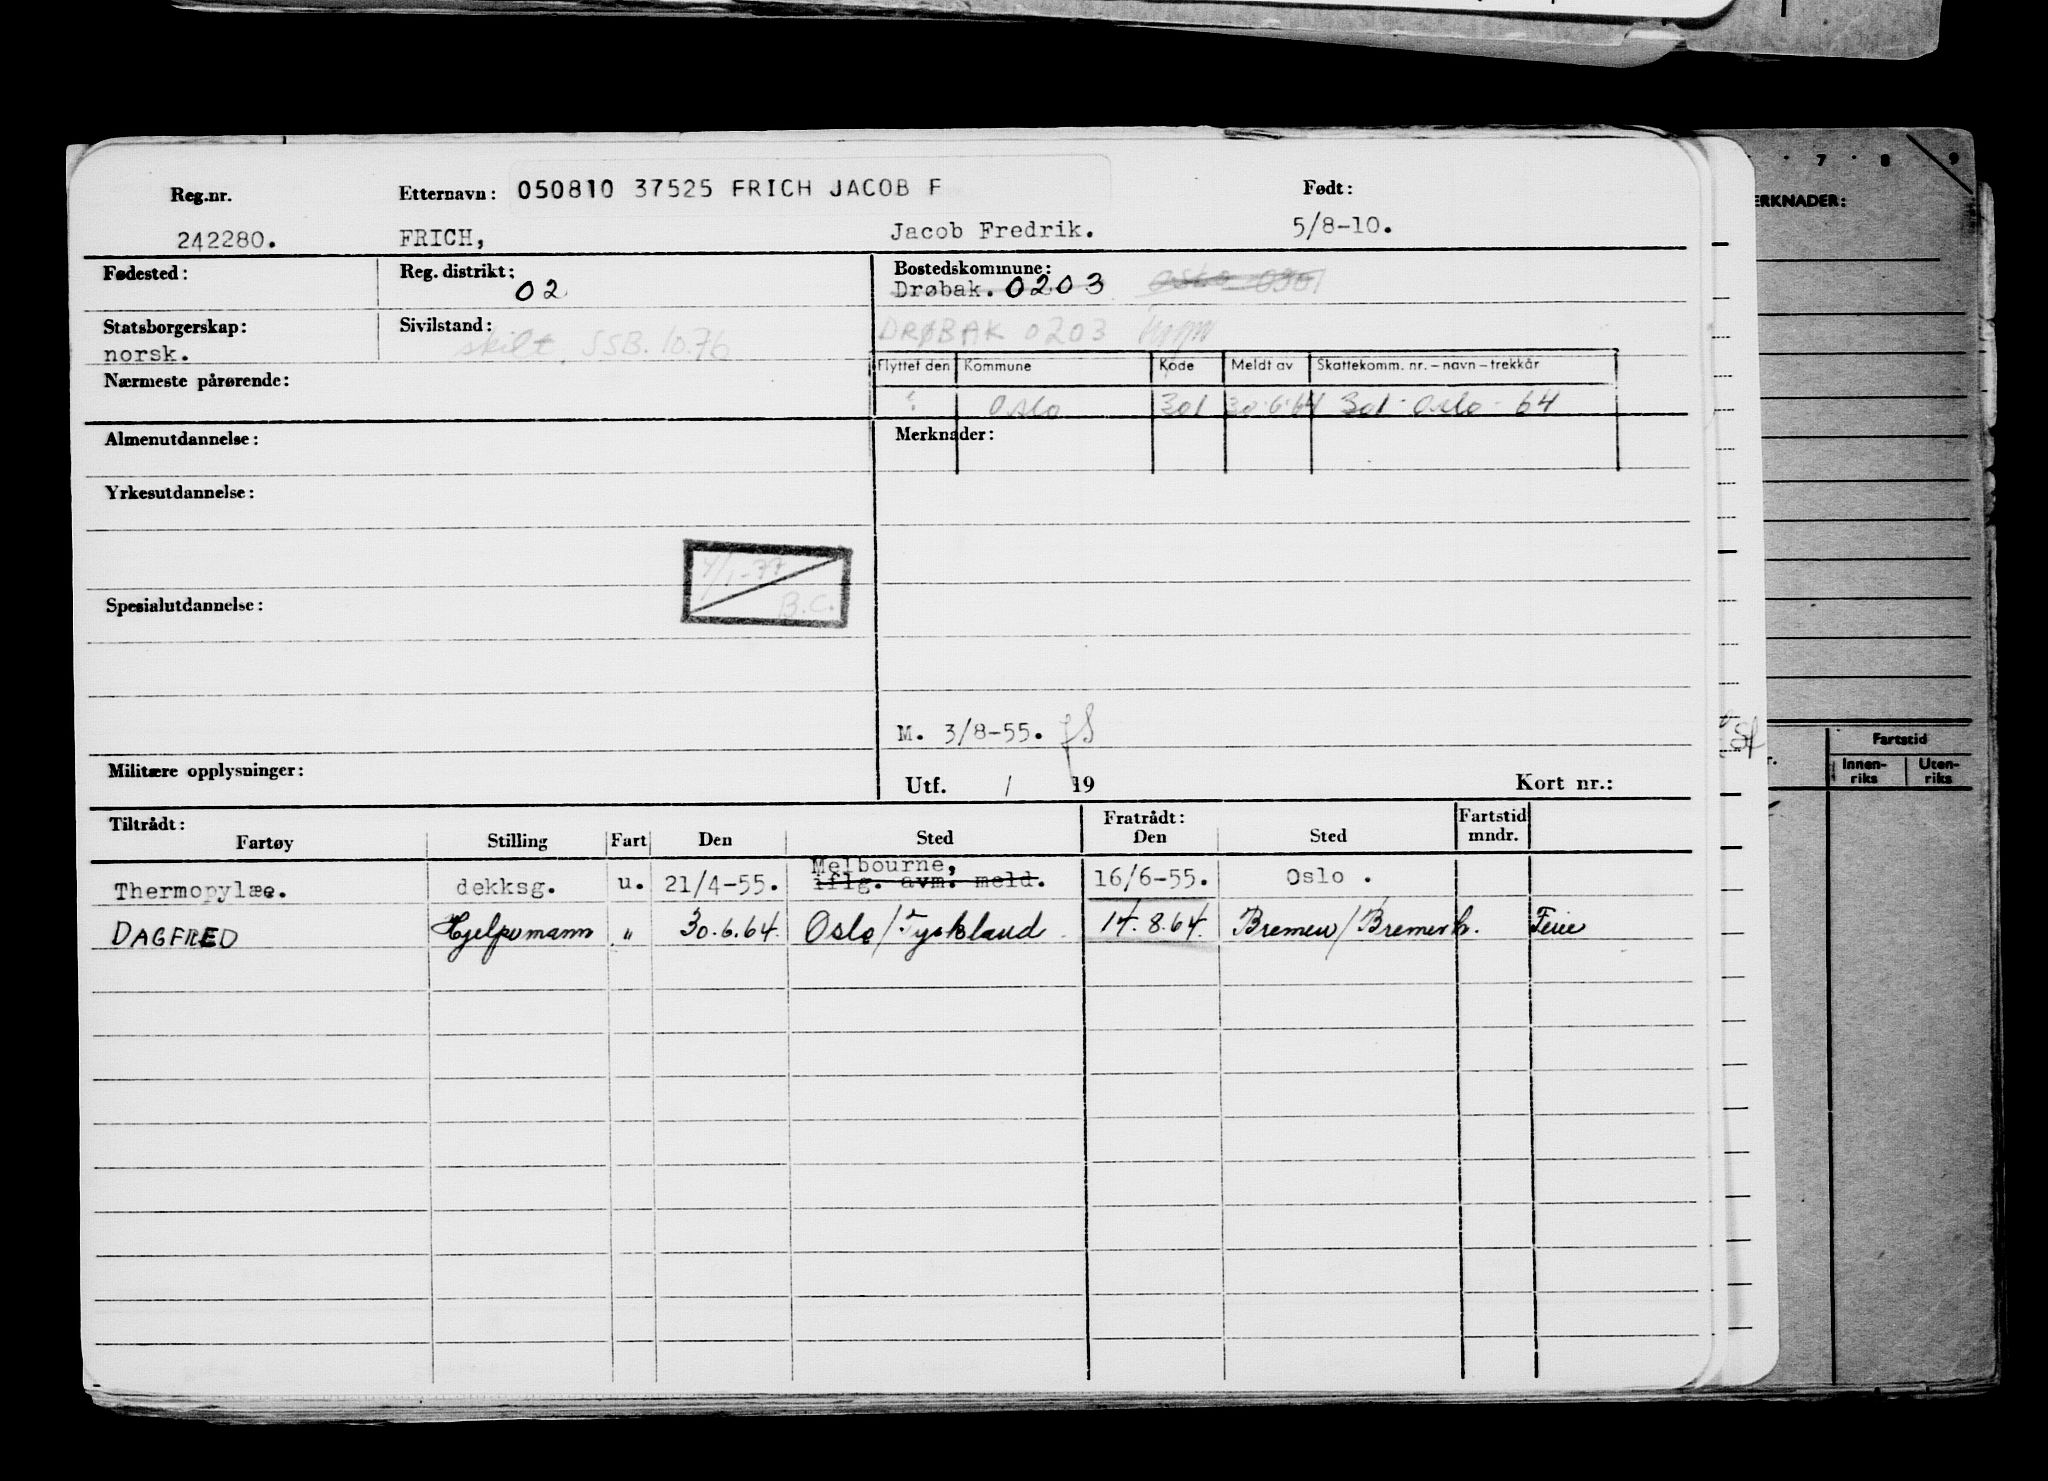 7 8 9
ERKNADER:
Reg.nr. Etternavn: 050810 37525 FRICH JACOB F Født:
242280. FRICH, Jacob Fredrik. 5/8-10.
Fødested: Reg. distrikt: 02 Bostedskommune:
Drøbak. 0203 Oslo 0301
Statsborgerskap: Sivilstand: DRØBAK 0203
norsk. skilt. SSB. 10.76
Nærmeste pårørende: Flyttet den Kommune Kode Meldt av Skattekomm. nr. – navn – trekkår
? Oslo 301 30.6.64 301 - Oslo - 64
Almenutdannelse: Merknader:
Yrkesutdannelse:
4/1-77
B.C.
Spesialutdannelse:
M. 3/8-55.
Militære opplysninger: Utf. / 19 Kort nr.:
Fartstid
Innen-riks Uten-riks
Tiltrådt: Fratrådt: Fartstid
Fartøy Stilling Fart Den Sted Den Sted mndr.
Thermopylæe. dekksg. u. 21/4-55. Melbourne, iflg. avm. meld. 16/6-55. Oslo .
DAGFRED Hjelpemann " 30.6.64. Oslo/Tyskland 14.8.64. Bremen/Bremerh. Ferie